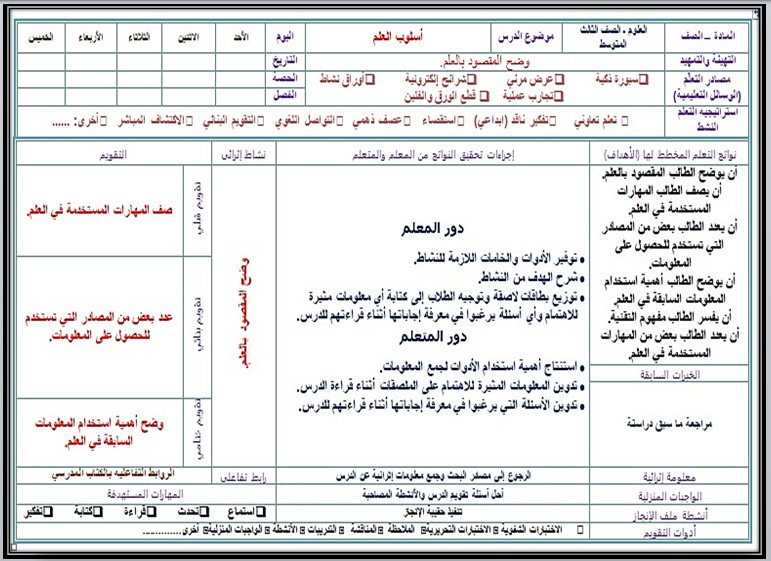 المادة – الصف
العلوم - الصف الثالث المتوسط
موضوع الدرس
أسلوب العلم
اليوم
الأحد
الاثنين
الثلاثاء
الأربعاء
الخميس
التهيئة والتمهيد
وضح المقصود بالعلم.
التاريخ
مصادر التعلم
(الوسائل التعليمية)
□سبورة ذكية □عرض مرئي □شرائح إلكترونية □أوراق نشاط
□تجارب عملية □ قطع الورق والفلين
الحصة
الفصل
استراتيجيه التعلم
النشط
□ تعلم تعاوني □تفكير ناقد (ابداعي) □استقصاء □عصف ذهني □التواصل اللغوي □التقويم البنائي □الاكتشاف المباشر □أخرى: ......
نواتج التعلم المخطط لها (الأهداف)
إجراءات تحقيق النواتج من المعلم والمتعلم
نشاط إثرائي
التقويم
أن يوضح الطالب المقصود بالعلم.
أن يصف الطالب المهارات
المستخدمة في العلم.
أن يعدد الطالب بعض من المصادر
التي تستخدم للحصول على
المعلومات.
أن يوضح الطالب أهمية استخدام
المعلومات السابقة في العلم.
أن يفسر الطالب مفهوم التقنية.
أن يعدد الطالب بعض من المهارات
المستخدمة في العلم.
الخبرات السابقة
مراجعة ما سبق دراستة
دور المعلم
● توفير الأدوات والخامات اللازمة للنشاط.
● شرح الهدف من النشاط.
● توزيع بطاقات لاصقة وتوجيه الطلاب إلى كتابة أي معلومات مثيرة
للاهتمام وأي أسئلة يرغبوا في معرفة إجاباتها أثناء قراءتهم للدرس.
دور المتعلم
● استنتاج أهمية استخدام الأدوات لجمع المعلومات.
● تدوين المعلومات المثيرة للاهتمام على الملصقات أثناء قراءة الدرس.
● تدوين الأسئلة التي يرغبوا في معرفة إجاباتها أثناء قراءتهم للدرس.
وضح المقصود بالعلم.
تقويم قبلي
صف المهارات المستخدمة في العلم.
تقويم بنائي
عدد بعض من المصادر التي تستخدم
للحصول على المعلومات.
تقويم ختامي
وضح أهمية استخدام المعلومات
السابقة في العلم.
معلومة إثرائية
الرجوع إلى مصادر البحث وجمع معلومات إثرائية عن الدرس
رابط تفاعلي
الروابط التفاعليه بالكتاب المدرسي
الواجبات المنزلية
أحل أسئلة تقويم الدرس والأنشطة المصاحبة
المهارات المستهدفة
أنشطة ملف الإنجاز
تنفيذ حقيبة الإنجاز
❑استماع ❑تحدث ❑قراءة ❑كتابة ❑تفكير
أدوات التقويم
□ الاختبارات الشفوية الاختبارات التحريرية الملاحظة المناقشة التدريبات الأنشطة الواجبات المنزلية أخرى..............